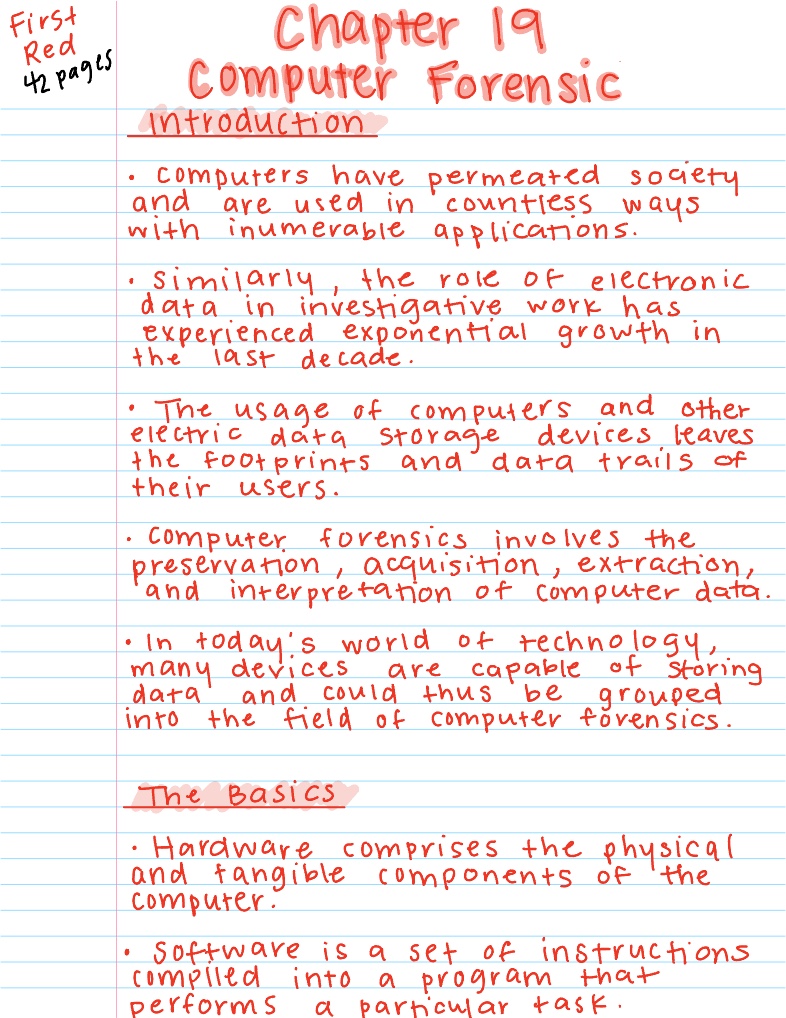 First
Red
42 pages
Chapter 19
Computer Forensic
Introduction
• Computers have permeated society
and are used in countless ways
with inumerable applications.
• Similarly, the role of electronic
data in investigative work has
experienced exponential growth in
the last decade.
• The usage of computers and other
electric data storage devices leaves
the footprints and data trails of
their users.
• Computer forensics involves the
preservation, acquisition, extraction,
and interpretation of computer data.
• In today's world of technology,
many devices are capable of storing
data and could thus be grouped
into the field of computer forensics.
The Basics
• Hardware comprises the physical
and tangible components of the
computer.
• Software is a set of instructions
compiled into a program that
performs a particular task.